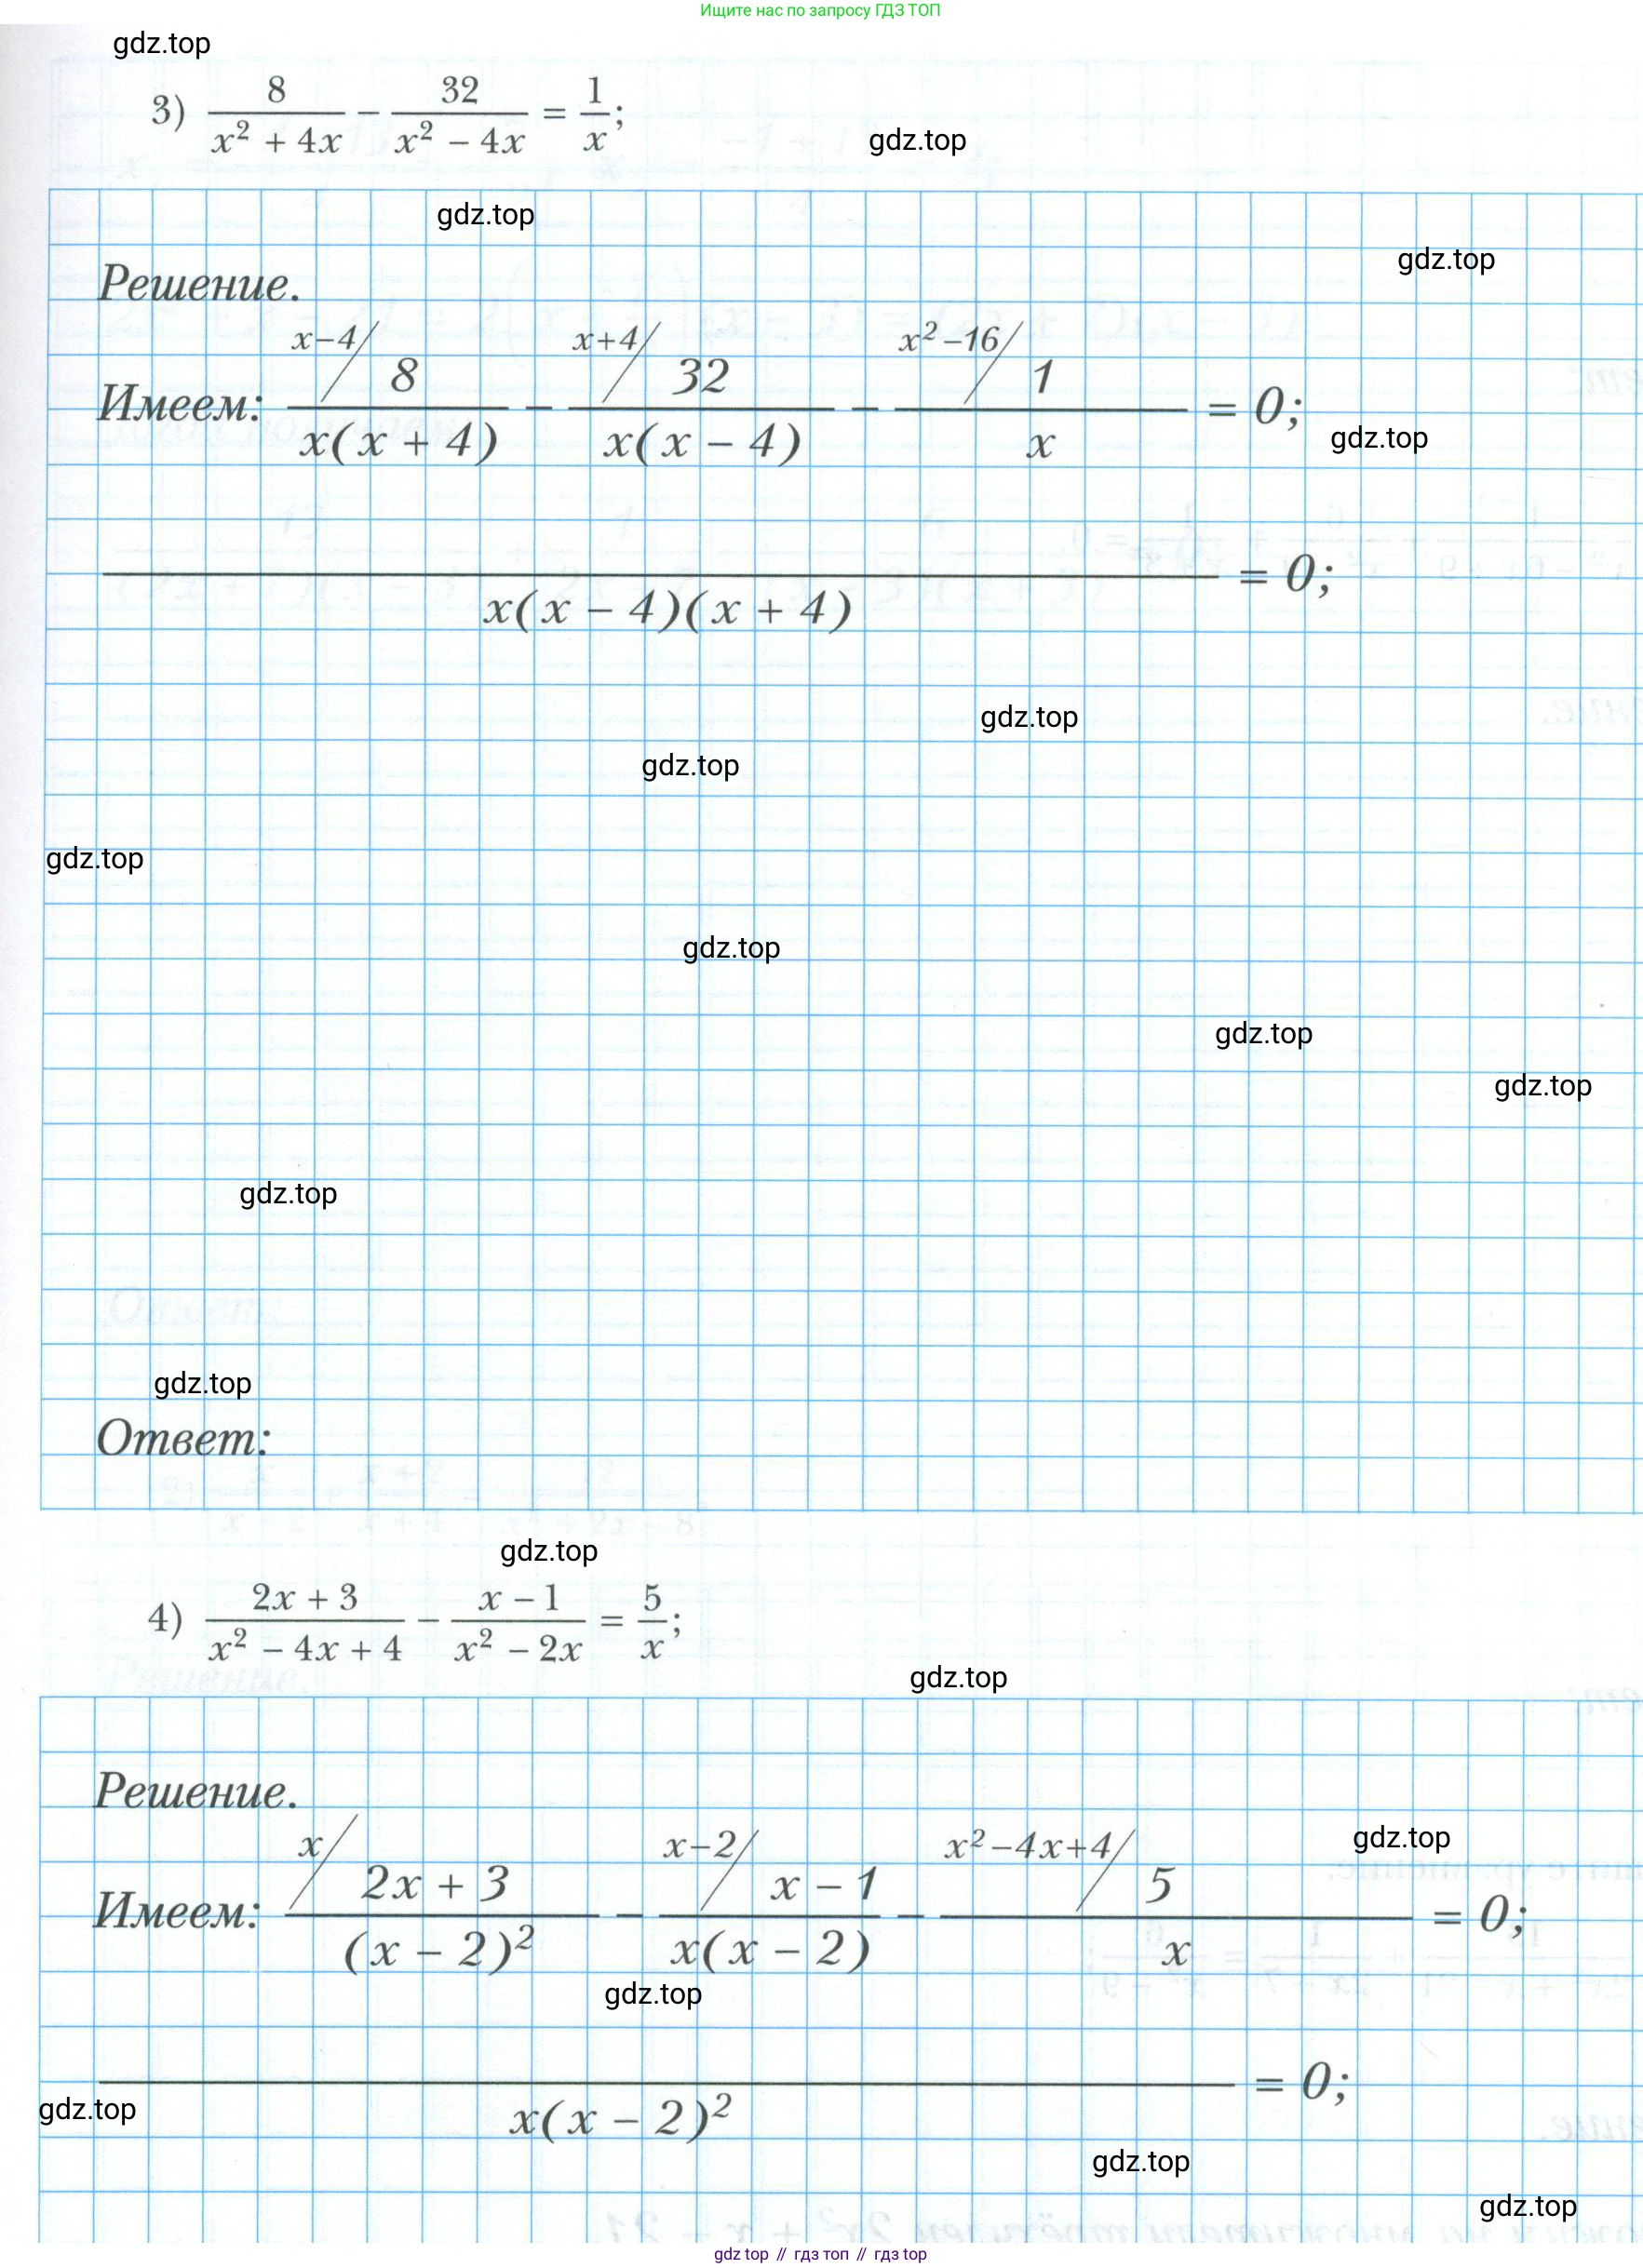 Ищите нас по запросу ГДЗ ТОП
gdz.top
3) 8/(x² + 4x) − 32/(x² − 4x) = 1/x;
gdz.top
gdz.top
gdz.top
Решение.
Имеем: ˣ⁻⁴/ 8/(x(x + 4)) − ˣ⁺⁴/ 32/(x(x − 4)) − x²−16/ 1/x = 0;
gdz.top
/(x(x − 4)(x + 4)) = 0;
gdz.top
gdz.top
gdz.top
gdz.top
gdz.top
gdz.top
gdz.top
gdz.top
Ответ:
gdz.top
4) (2x + 3)/(x² − 4x + 4) − (x − 1)/(x² − 2x) = 5/x;
gdz.top
Решение.
gdz.top
Имеем: x/ (2x + 3)/((x − 2)²) − x−2/ (x − 1)/(x(x − 2)) − x²−4x+4/ 5/x = 0;
gdz.top
/(x(x − 2)²) = 0;
gdz.top
gdz.top
gdz.top
gdz top // гдз топ // гдз top